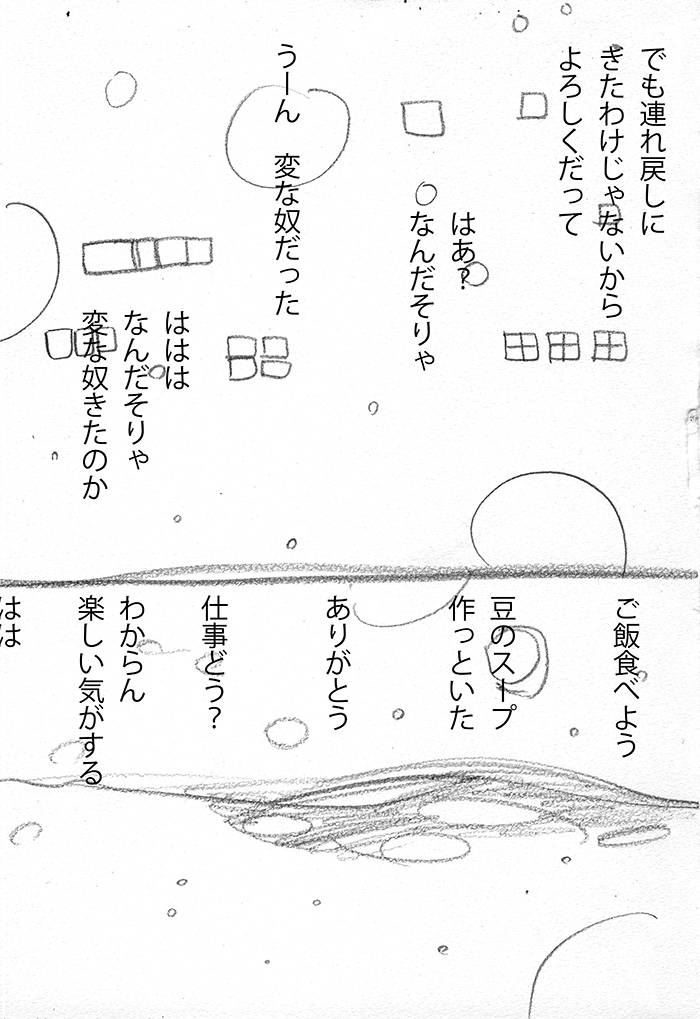 でも連れ戻しに
きたわけじゃないから
よろしくだって
はあ？
なんだそりゃ
うーん　変な奴だった
ははは
なんだそりゃ
変な奴きたのか
ご飯食べよう
豆のスープ
作っといた
ありがとう
仕事どう？
わからん
楽しい気がする
はは